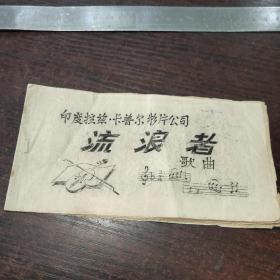 印度拉兹·卡普尔影片公司
流浪者
歌曲